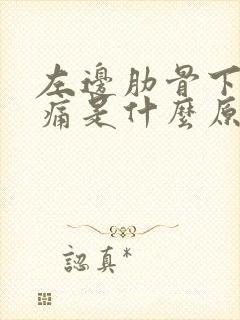 左邊肋骨下
痛是什麼原
認真*